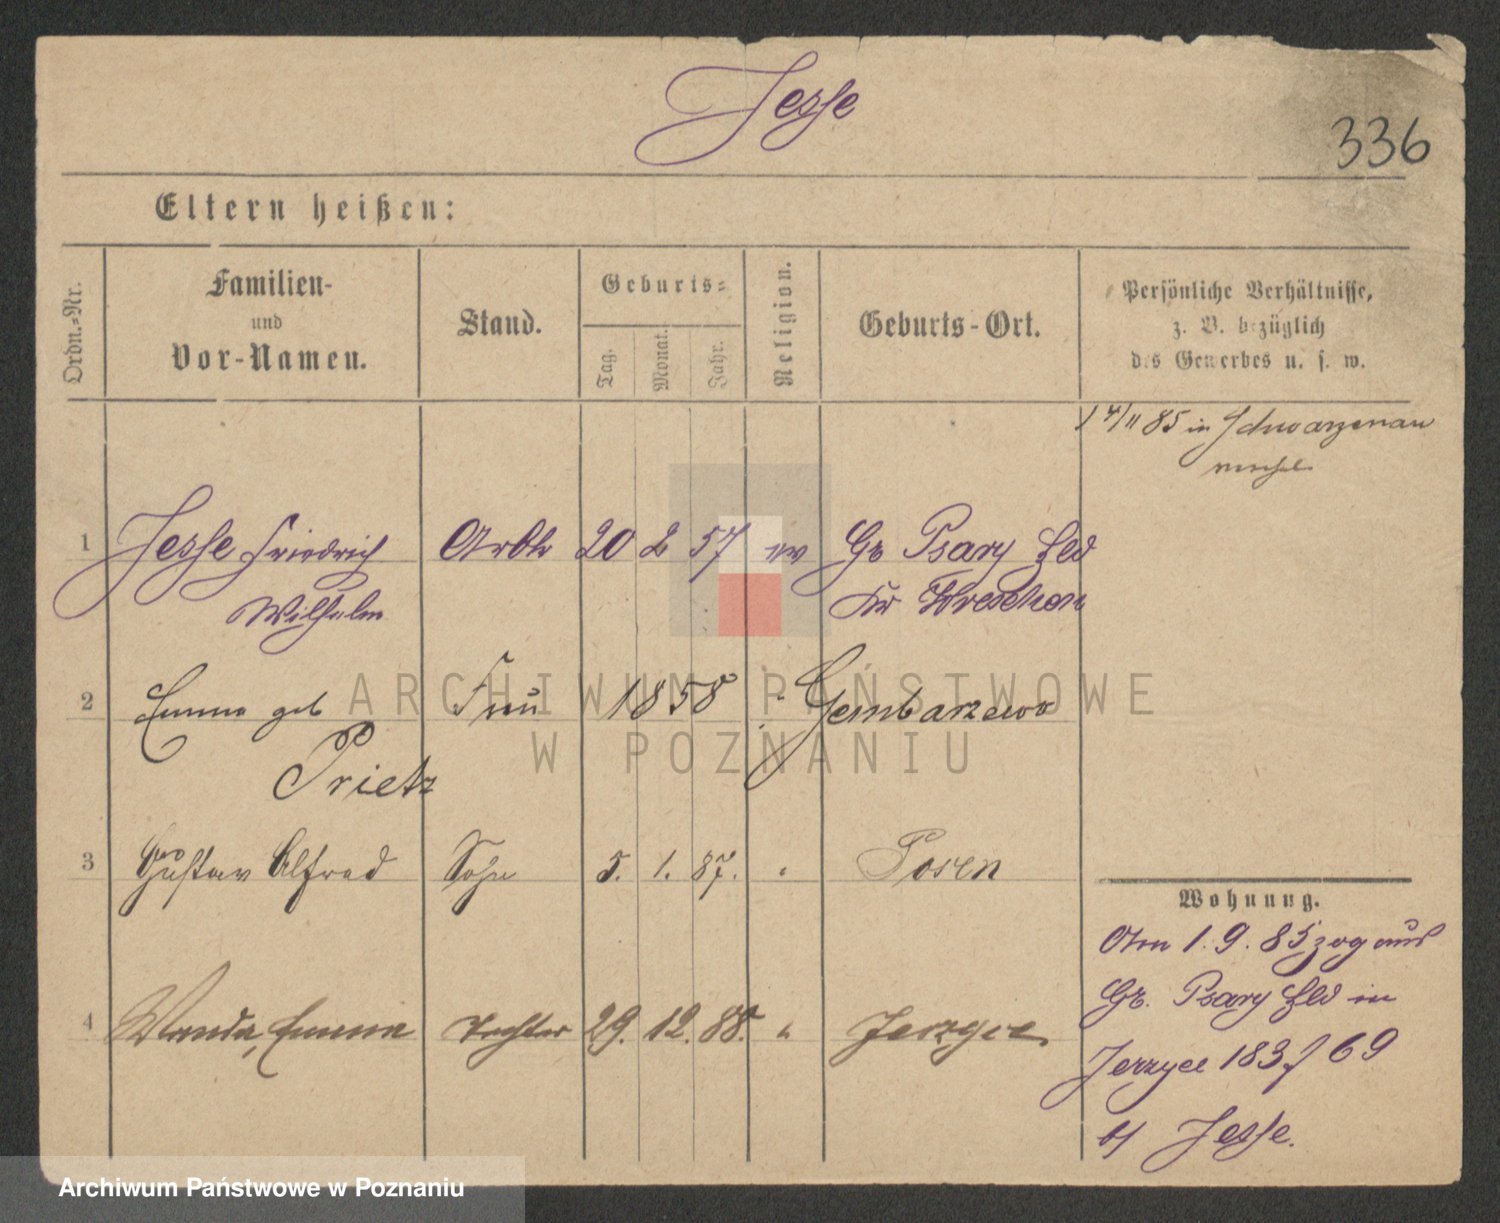 Jesse
336
Eltern heißen:
Ordn.-Nr.
Familien-
und
Vor-Namen.
Stand.
Geburts-
Tag.
Monat.
Jahr.
Religion.
Geburts-Ort.
Persönliche Verhältnisse,
z. B. bezüglich
des Gewerbes u. s. w.
14/11 85 in Schwarzenau
1 Jesse Friedrich Arbtr 20 2 57 ev Gr Psary Hld
Wilhelm Kr Wreschen
2 Emma geb Frau 1858 " Gembarzewo
Prietz
3 Gustav Alfred Sohn 5. 1. 87. " Posen
4 Wanda, Emma Tochter 29. 12. 88. " Jerzyce
Wohnung.
Am 1. 9. 85 zog aus
Gr. Psary Hld in
Jerzyce 183/69
b/ Jesse.
ARCHIWUM PAŃSTWOWE
W POZNANIU
Archiwum Państwowe w Poznaniu